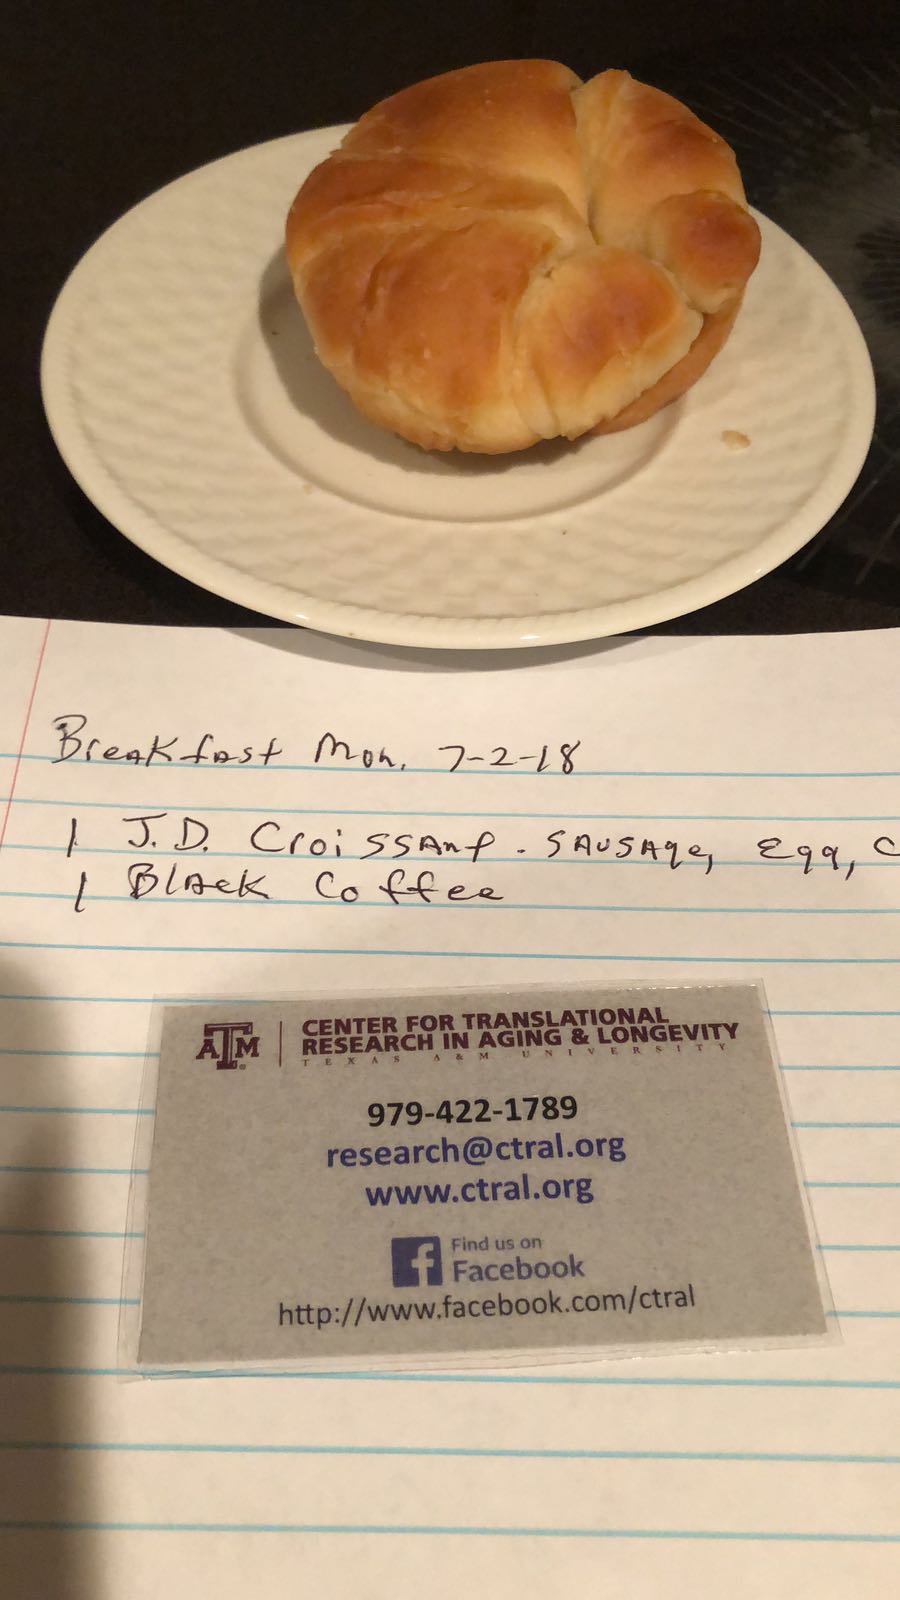 Breakfast Mon. 7-2-18
1 J.D. Croissant - SAUSAge, Egg, C
1 Black Coffee
ATM
CENTER FOR TRANSLATIONAL
RESEARCH IN AGING & LONGEVITY
TEXAS A&M UNIVERSITY
979-422-1789
research@ctral.org
www.ctral.org
f Find us on
Facebook
http://www.facebook.com/ctral